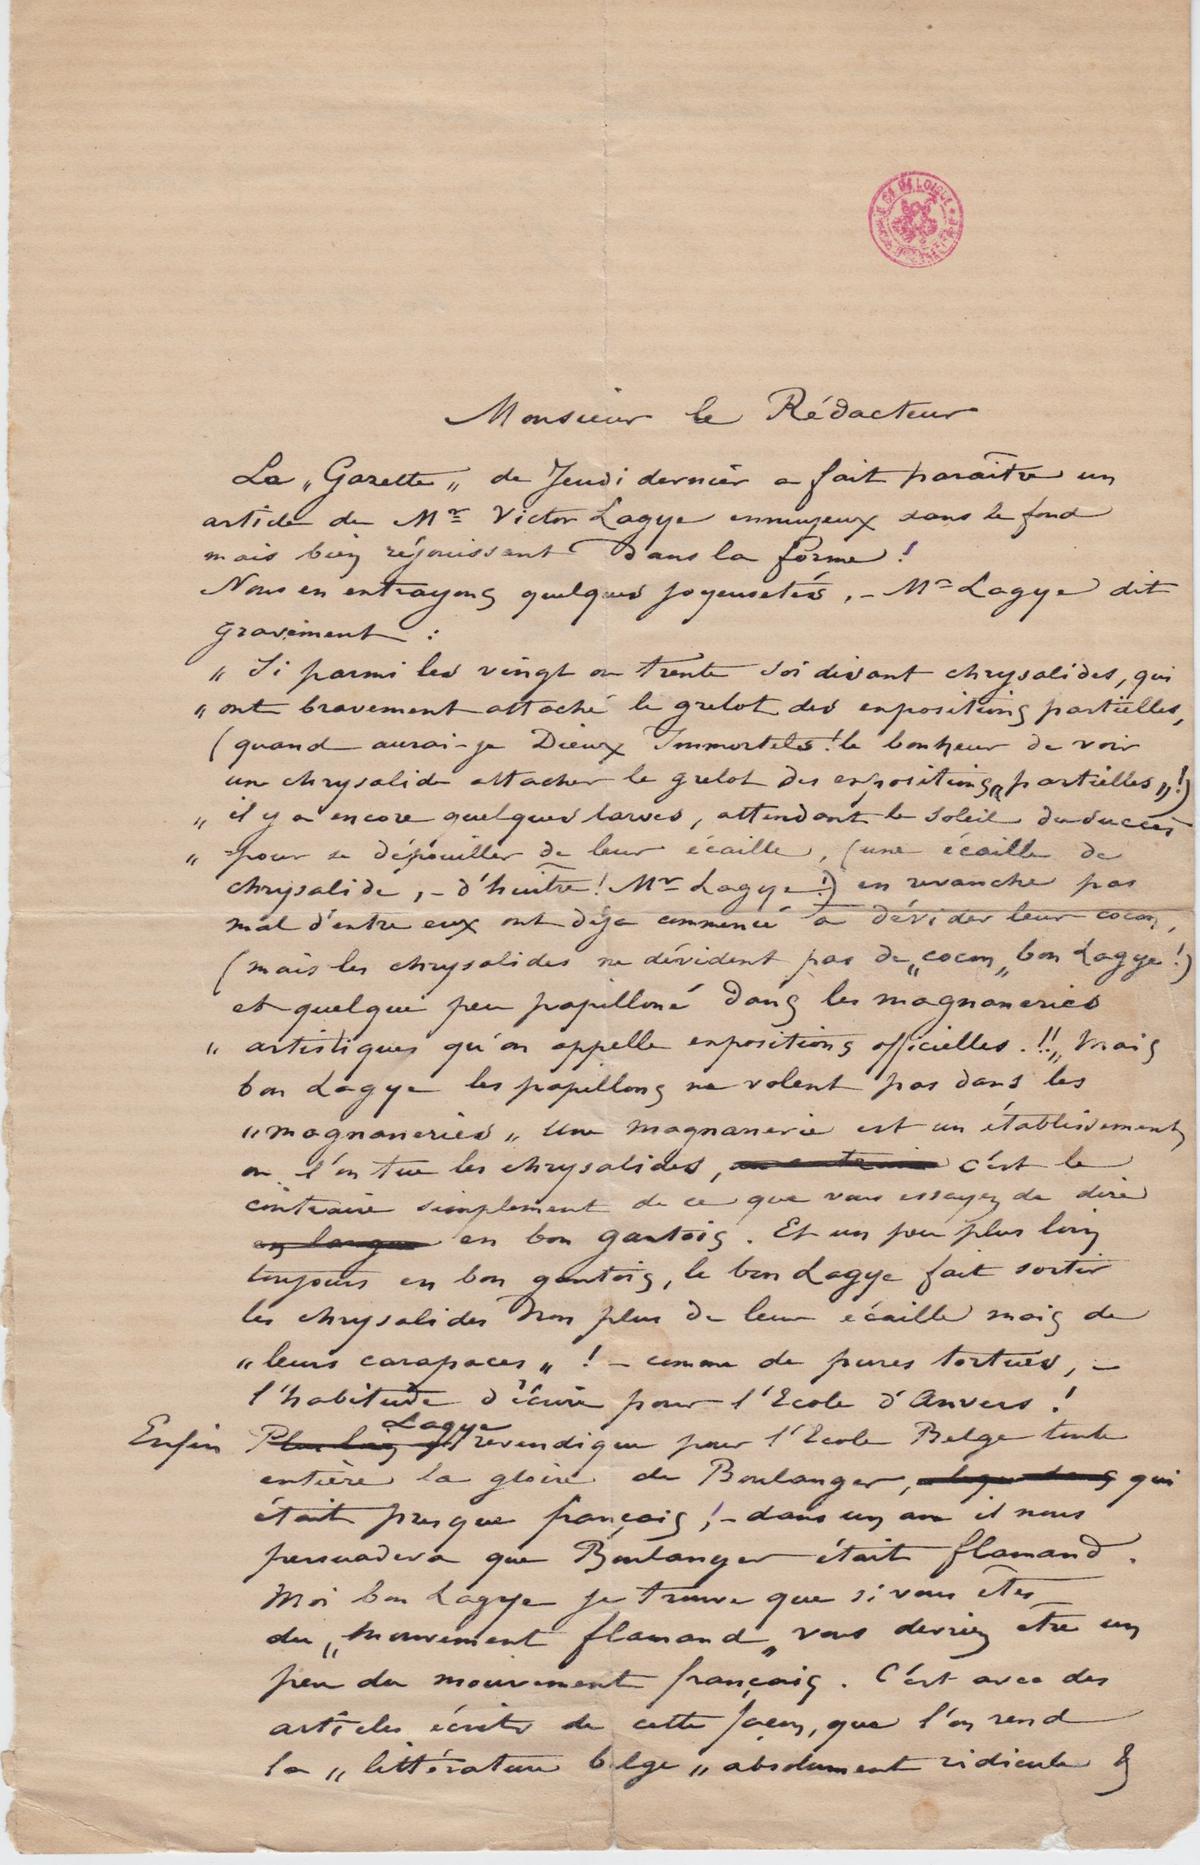 Monsieur le Rédacteur
La „Gazette„ de Jeudi dernier a fait paraître un
article de Mr Victor Lagye ennuyeux dans le fond
mais bien réjouissant dans la forme !
Nous en extrayons quelques joyeusetés. – Mr Lagye dit
gravement :
„ Si parmi les vingt ou trente soi disant chrysalides, qui
„ ont bravement attaché le grelot des expositions partielles,
(quand aurai-je Dieux Immortels ! le bonheur de voir
un chrysalide attacher le grelot des expositions partielles„!)
„ il y a encore quelques larves, attendant le soleil du succès
„ pour se dépouiller de leur écaille, (une écaille de
chrysalide, – d'huître ! Mr Lagye !) en revanche pas
mal d'entre eux ont déja commencé a dévider leur cocon,
(mais les chrysalides ne dévident pas de „cocon„ bon Lagye !)
et quelque peu papilloné dans les magnaneries
„ artistiques qu'on appelle expositions officielles. !!„ Mais
bon Lagye les papillons ne volent pas dans les
„magnaneries„ Une magnanerie est un établissement
ou l'on tue les chrysalides, c'est le
contraire simplement de ce que vous essayez de dire
en bon gantois. Et un peu plus loin
toujours en bon gantois, le bon Lagye fait sortir
les chrysalides non plus de leur écaille mais de
„leurs carapaces„ ! – comme de pures tortues, –
l'habitude d'écrire pour l'Ecole d'Anvers !
Enfin Lagye revendique pour l'Ecole Belge toute
entière la gloire de Boulanger, qui
était presque français ; – dans un an il nous
persuadera que Boulanger était flamand.
Moi bon Lagye je trouve que si vous êtes
du „mouvement flamand„ vous devriez être un
peu du mouvement français. C'est avec des
articles écrits de cette façon, que l'on rend
la „littérature belge„ absolument ridicule &